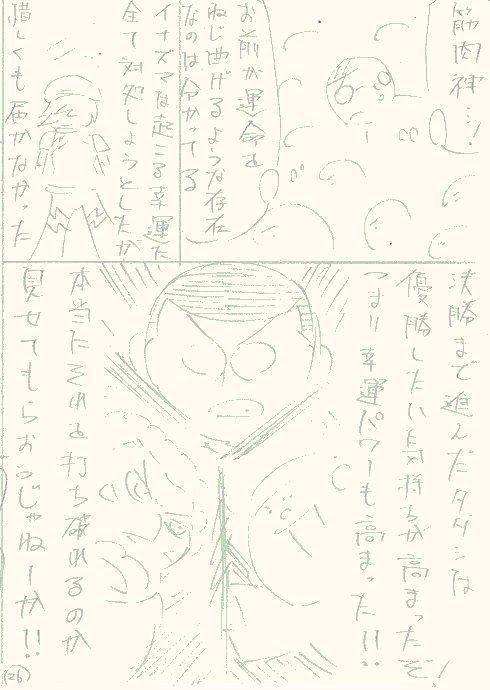 筋肉神ッ!
お前が運命を
ねじ曲げるような存在
なのは分かってる
イナズマは起こる幸運に
全て対処しようとしたが
惜しくも届かなかった
決勝まで進んだタダシは
優勝したい気持ちが高まったぞ!
つまり幸運パワーも高まった!!
本当にそれを打ち破れるのか
見せてもらおうじゃねーか!!
26